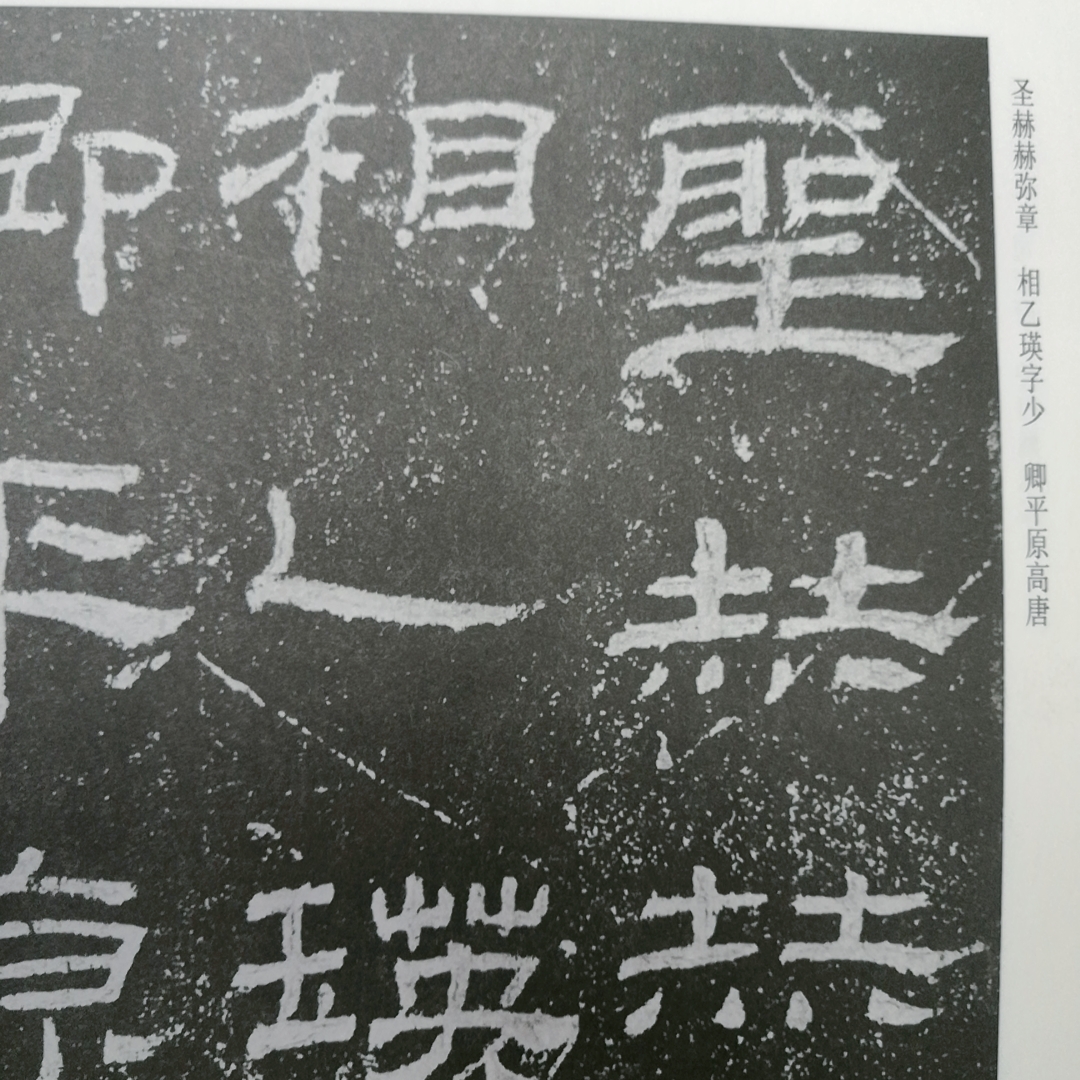 聖赫赫
相乙瑛
卿平原
圣赫赫弥章　相乙瑛字少　卿平原高唐